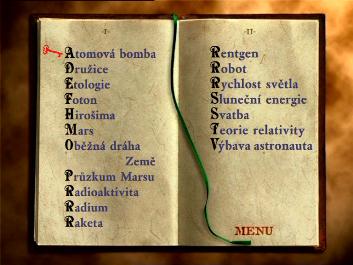 -I-
Atomová bomba
Družice
Etologie
Foton
Hirošima
Mars
Oběžná dráha
Země
Průzkum Marsu
Radioaktivita
Radium
Raketa
-II-
Rentgen
Robot
Rychlost světla
Sluneční energie
Svatba
Teorie relativity
Výbava astronauta
MENU